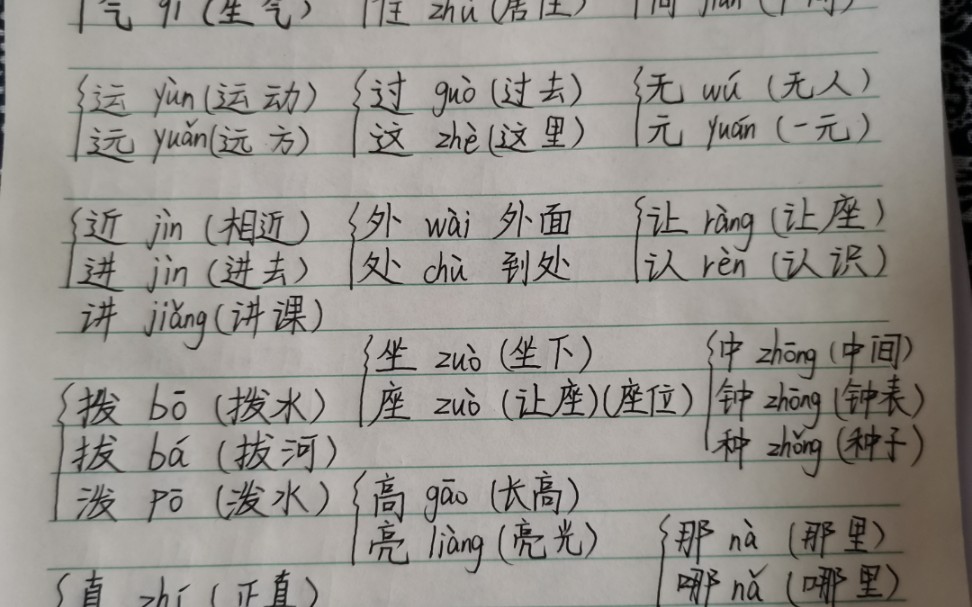 气 qì (生气) 住 zhù (居住) 间 jiān
运 yùn (运动) 过 guò (过去) 无 wú (无人)
远 yuǎn (远方) 这 zhè (这里) 元 yuán (一元)
近 jìn (相近) 外 wài 外面 让 ràng (让座)
进 jìn (进去) 处 chù 到处 认 rèn (认识)
讲 jiǎng (讲课)
坐 zuò (坐下) 中 zhōng (中间)
拨 bō (拨水) 座 zuò (让座) (座位) 钟 zhōng (钟表)
拔 bá (拔河) 种 zhǒng (种子)
泼 pō (泼水) 高 gāo (长高)
亮 liàng (亮光) 那 nà (那里)
直 zhí (正直) 哪 nǎ (哪里)